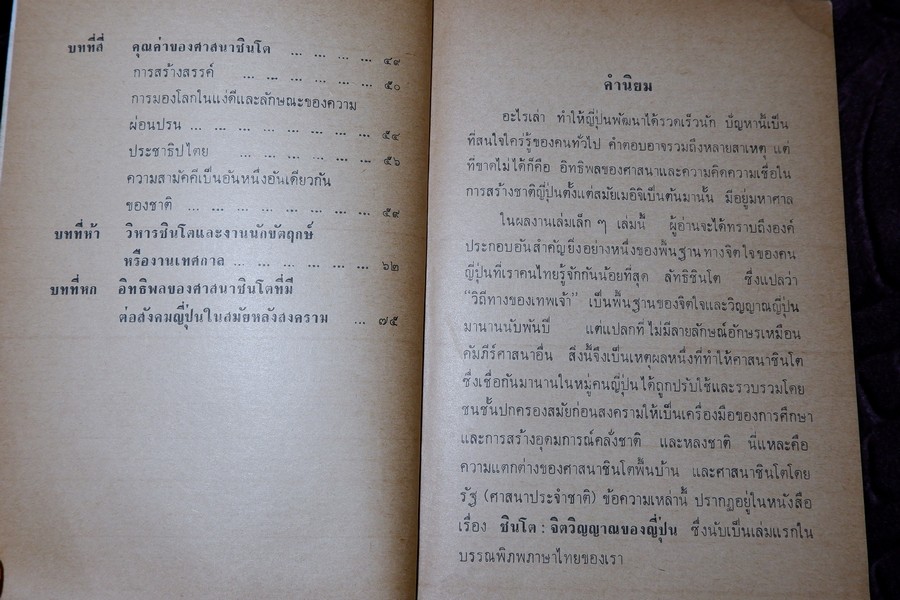 บทที่สี่ คุณค่าของศาสนาชินโต ... ... ... ... ๔๙
การสร้างสรรค์ ... ... ... ... ... ๕๐
การมองโลกในแง่ดีและลักษณะของความ
ผ่อนปรน ... ... ... ... ... ... ... ๕๔
ประชาธิปไตย ... ... ... ... ... ๕๖
ความสามัคคีเป็นอันหนึ่งอันเดียวกัน
ของชาติ ... ... ... ... ... ... ... ๕๙
บทที่ห้า วิหารชินโตและงานนักขัตฤกษ์
หรืองานเทศกาล ... ... ... ... ... ๖๒
บทที่หก อิทธิพลของศาสนาชินโตที่มี
ต่อสังคมญี่ปุ่นในสมัยหลังสงคราม ... ๗๕
คำนิยม
อะไรเล่า ทำให้ญี่ปุ่นพัฒนาได้รวดเร็วนัก ปัญหานี้เป็น
ที่สนใจใคร่รู้ของคนทั่วไป คำตอบอาจรวมถึงหลายสาเหตุ แต่
ที่ขาดไม่ได้ก็คือ อิทธิพลของศาสนาและความคิดความเชื่อใน
การสร้างชาติญี่ปุ่นตั้งแต่สมัยเมอิจิเป็นต้นมานั้น มีอยู่มหาศาล
ในผลงานเล่มเล็ก ๆ เล่มนี้ ผู้อ่านจะได้ทราบถึงองค์
ประกอบอันสำคัญยิ่งอย่างหนึ่งของพื้นฐานทางจิตใจของคน
ญี่ปุ่นที่เราคนไทยรู้จักกันน้อยที่สุด ลัทธิชินโต ซึ่งแปลว่า
"วิถีทางของเทพเจ้า" เป็นพื้นฐานของจิตใจและวิญญาณญี่ปุ่น
มานานนับพันปี แต่แปลกที่ ไม่มีลายลักษณ์อักษรเหมือน
คัมภีร์ศาสนาอื่น สิ่งนี้จึงเป็นเหตุผลหนึ่งที่ทำให้ศาสนาชินโต
ซึ่งเชื่อกันมานานในหมู่คนญี่ปุ่นได้ถูกปรับใช้และรวบรวมโดย
ชนชั้นปกครองสมัยก่อนสงครามให้เป็นเครื่องมือของการศึกษา
และการสร้างอุดมการณ์คลั่งชาติ และหลงชาติ นี่แหละคือ
ความแตกต่างของศาสนาชินโตพื้นบ้าน และศาสนาชินโตโดย
รัฐ (ศาสนาประจำชาติ) ข้อความเหล่านี้ ปรากฏอยู่ในหนังสือ
เรื่อง ชินโต : จิตวิญญาณของญี่ปุ่น ซึ่งนับเป็นเล่มแรกใน
บรรณพิภพภาษาไทยของเรา